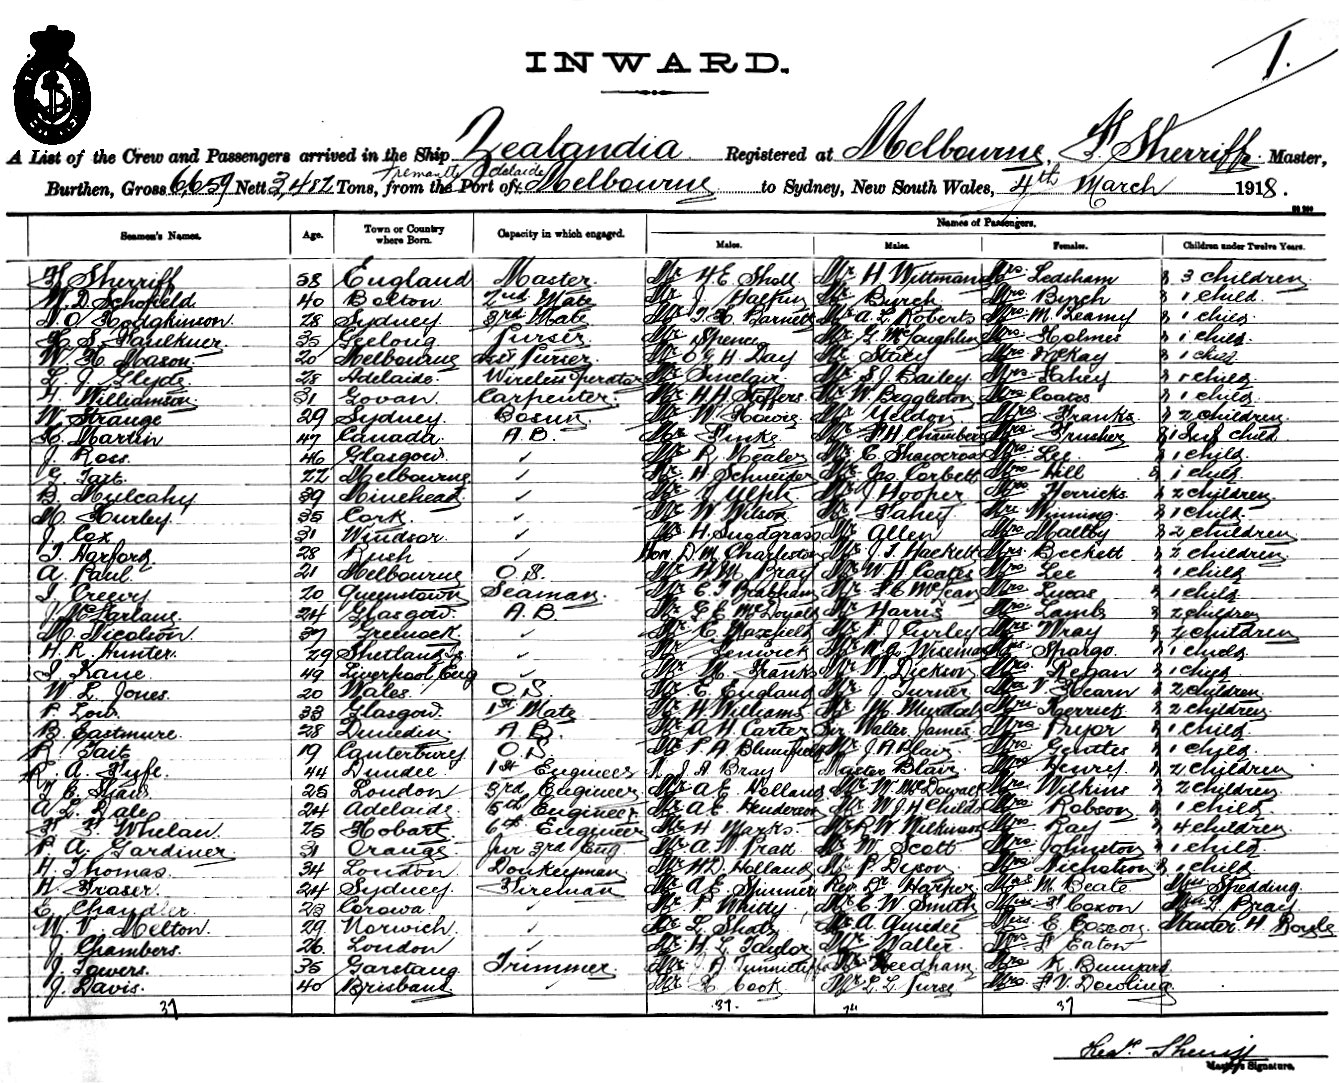 1.
INWARD.
A List of the Crew and Passengers arrived in the Ship Zealandia Registered at Melbourne, F. Sherriff Master,
Fremantle Adelaide
Burthen, Gross 6,659 Nett 3,482 Tons, from the Port of Melbourne to Sydney, New South Wales, 4th March 1918.
Seamen's Names. Age. Town or Country where Born. Capacity in which engaged. Names of Passengers.
Males. Males. Females. Children under Twelve Years.
Sherriff 38 England Master Mr H.E. Sholl Mr H Wittman Mrs Ledsham & 3 children
W.D. Schofield 40 Bolton 2nd Mate Mr J. Halfin Mr Byrch Mrs Byrch & 1 child.
Hodgkinson. 28 Sydney 3rd Mate Mr Barnett Mr A.L. Roberts Mrs M. Leamy & 1 child
Faulkner. 35 Geelong Purser Mr Spence Mr G. McLaughlin Mrs Holmes & 1 child.
Mason. 20 Melbourne Asst Purser Mr H Day Mr Stacy Mrs McKay & 1 child.
L. J. Glyde. 28 Adelaide. Wireless operator Mr Sinclair. Mr S.J. Bailey Mrs Fahey & 1 child
H. Williamson 31 Govan Carpenter. Mr H.H. Stoffers Mr W. Eggleston Mrs Coates & 1 child
W. Strange 29 Sydney Bosun Mr W Howie Mr Yeldon Mrs Franks & 2 children.
Martin 47 Canada A.B. Mr Finke Mr F.H. Chambers Mrs Trusher & 1 Inf child
J. Ross. 46 Glasgow. ✓ Mr R. Healey Mr E. Shawcross Mrs Lee & 1 child.
G. Tait. 22 Melbourne ✓ Mr H Schneider Mr Jas. Corbett Mrs Hill & 1 child
B. Mulcahy 39 Minehead. ✓ Mr J. Ulph Mr J Hooper Mrs Herricks & 2 children
M. Hurley. 35 Cork ✓ Mr W Wilson Mr Fahey Mrs Winning & 1 child.
J. Cox 31 Windsor. ✓ Mr H. Snodgrass Mr Allen Mrs Maltby & 2 children
T. Harford 28 Rush ✓ Hon. D.M. Charleston Mr J.T. Hackett Mrs Beckett & 2 children
A. Paul. 21 Melbourne O.S. Mr Bray Mr W.H. Coates Mrs Lee & 1 child
J. Creevy 20 Queenstown Seaman. Mr E.T. Brabham Mr McLean Mrs Lucas & 1 child
J. McFarlane 24 Glasgow. A.B. Mr McDonald Mr Harris Mrs Lamb & 2 children
M. Nicolson 37 Greenock ✓ Mr E. Masefield Mr P.J. Curley Mrs Wray & 2 children
H.R. Hunter. 29 Shetland Is. ✓ Mr Fenwick Mr Wiseman Mrs Spargo & 1 child
J. Kane. 49 Liverpool, Eng ✓ Mr M. Franks Mr W. Dickson Mrs Regan & 1 child
W. L. Jones. 20 Wales O.S. Mr E. England Mr J. Turner Mrs V. Hearn & 2 children
P. Low 33 Glasgow. 1st Mate Mr H Williams Mr M. Murdoch Mrs Herrick & 2 children.
B. Eastmure. 28 Dunedin. A.B. Mr H. Carter Sir Walter James Mrs Pryor & 1 child.
Tait 19 Canterbury O.S. Mr P.A. Blumfield Mr J.A. Blair Mrs & 1 child
R. A. Fyfe. 44 Dundee 1st Engineer J.A. Bray Master Blair Mrs Henry & 2 children
25 London 3rd Engineer Mr A.E. Holland Mr W. McDowall Mrs Wilkins & 2 children
A. L. Dale 24 Adelaide 5th Engineer Mr A.E. Henderson Mr W.J.H. Childs Mrs Robson & 1 child
Whelan 25 Hobart 6th Engineer Mr H. Marks. Mr R.W. Wilkinson Mrs Ray & 4 children
P. A. Gardiner. 31 Orange Jnr 3rd Eng Mr A.W. Pratt Mr W. Scott Mrs Johnston & 1 child
H. Thomas. 34 London Donkeyman Mr H.D. Holland Mr P. Dixon Mrs Nicholson & 1 child
H. Fraser. 24 Sydney Fireman Mr A.E. Skinner Rev. Dr Harper Mrs M. Beale Miss Spedding
E. Chandler 23 Corowa. ✓ Mr P. Whitty Mr E.W. Smith Mrs Coxon Miss Bray
W. V. Melton. 29. Norwich. ✓ Mr L. Shatz Mr A. Mrs E. Coxon Master H. Boyle
J. Chambers. 26. London. ✓ Mr H.L. Taylor Mr Waller. Mrs Eaton
J. Towers. 35 Garstang Trimmer. Mr J.A. Tunnicliffe Mr Needham. Mrs K. Bunyard
J. Davis. 40 Brisbane ✓ Mr Cook Mr L.L. Purse Mrs F.V. Dowling
37 37. 74 37
Sherriff
Master's Signature.